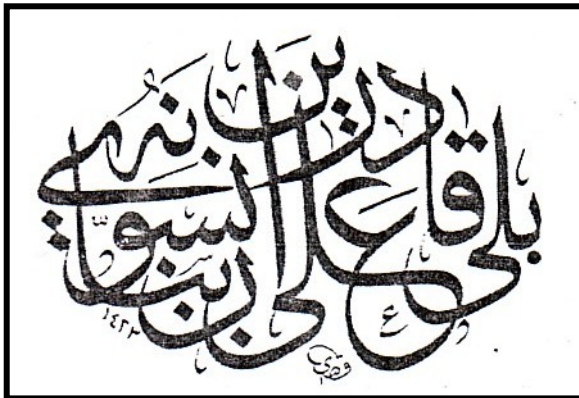 بلى قادرين على أن نسوي بنانه
١٤٢٣